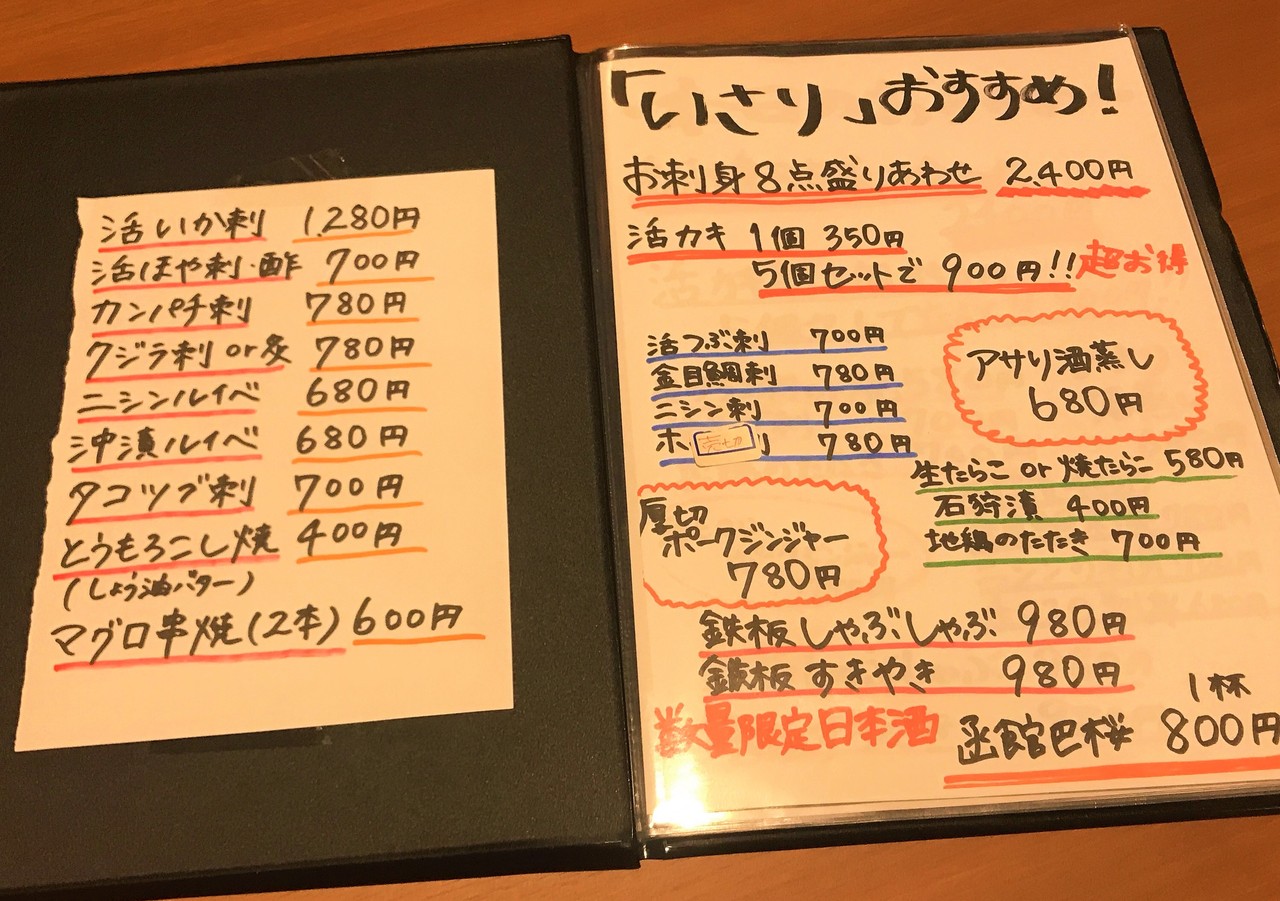 活いか刺 1,280円
活ほや刺・酢 700円
カンパチ刺 780円
クジラ刺or炙 780円
ニシンルイベ 680円
沖漬ルイベ 680円
タコツブ刺 700円
とうもろこし焼 400円
(しょう油バター)
マグロ串焼(2本) 600円
「いさり」おすすめ!
お刺身8点盛りあわせ 2,400円
活カキ 1個 350円
5個セットで 900円!! 超お得
活つぶ刺 700円
金目鯛刺 780円
ニシン刺 700円
ホ 売切 780円
アサリ酒蒸し
680円
生たらこ or 焼たらこ 580円
石狩漬 400円
地鶏のたたき 700円
厚切
ポークジンジャー
780円
鉄板しゃぶしゃぶ 980円
鉄板すきやき 980円
1杯
数量限定日本酒 函館巴桜 800円